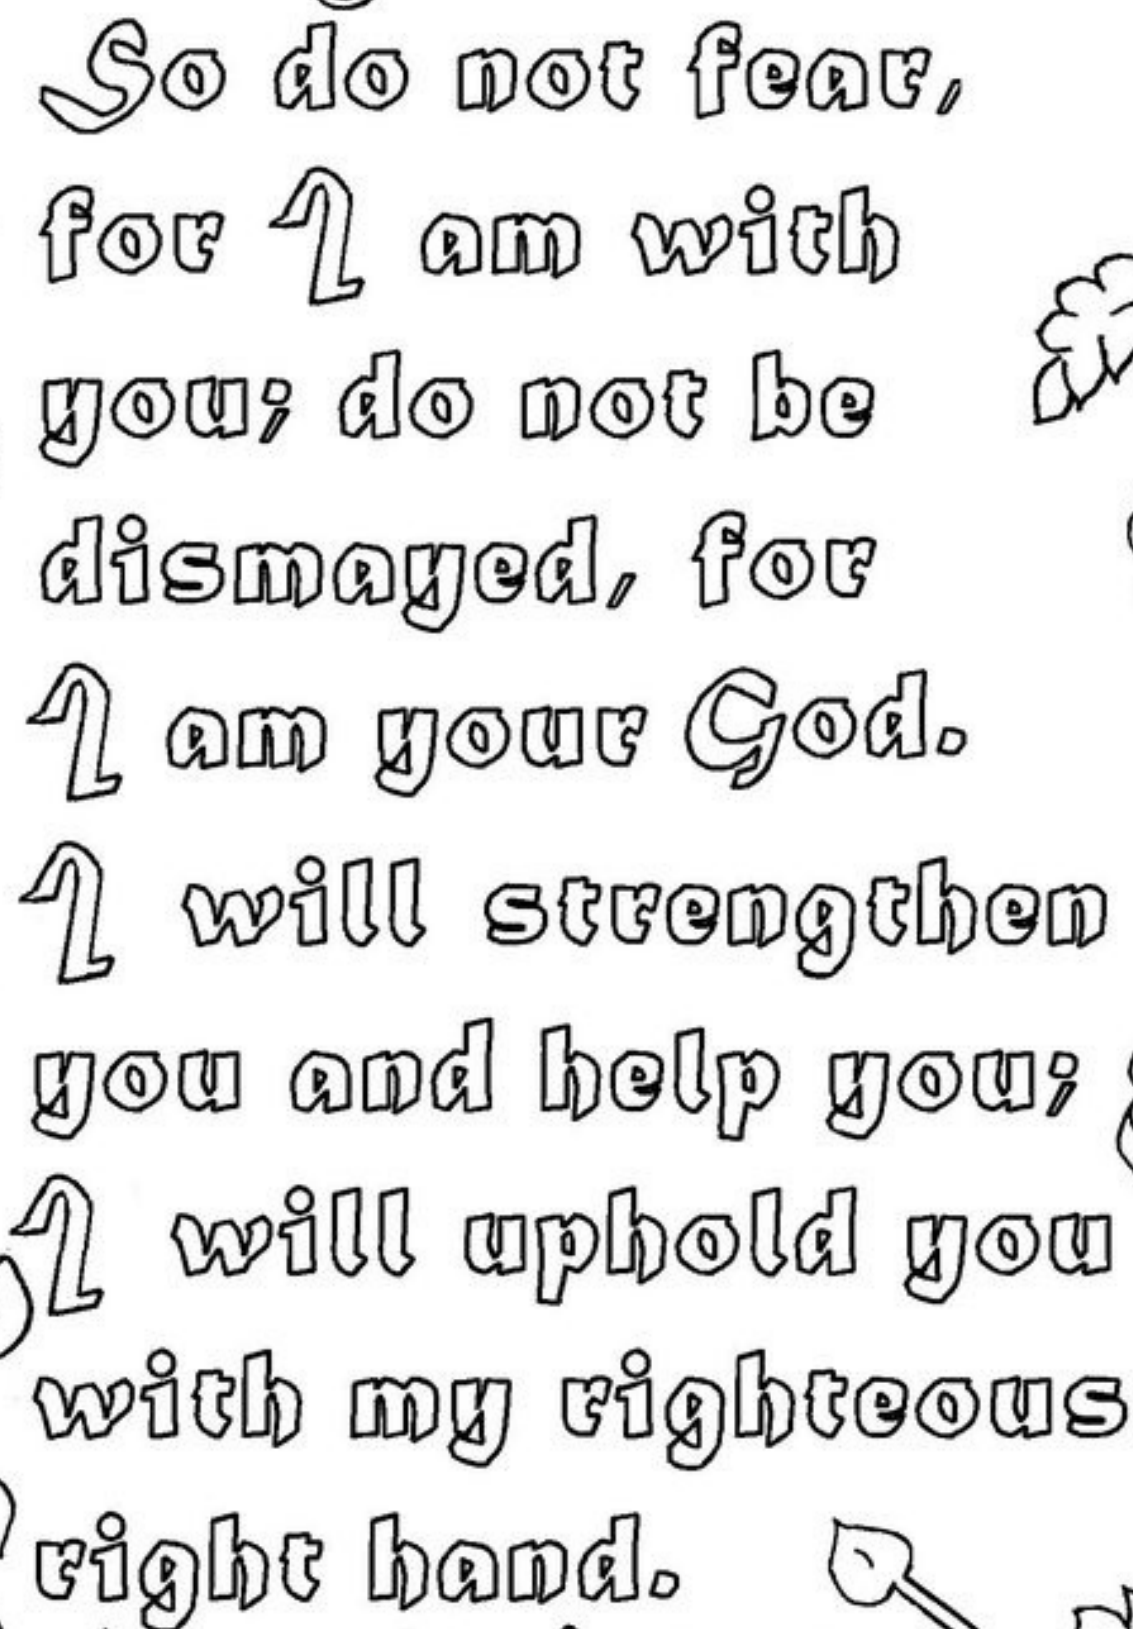 So do not fear,
for I am with
you; do not be
dismayed, for
I am your God.
I will strengthen
you and help you;
I will uphold you
with my righteous
right hand.